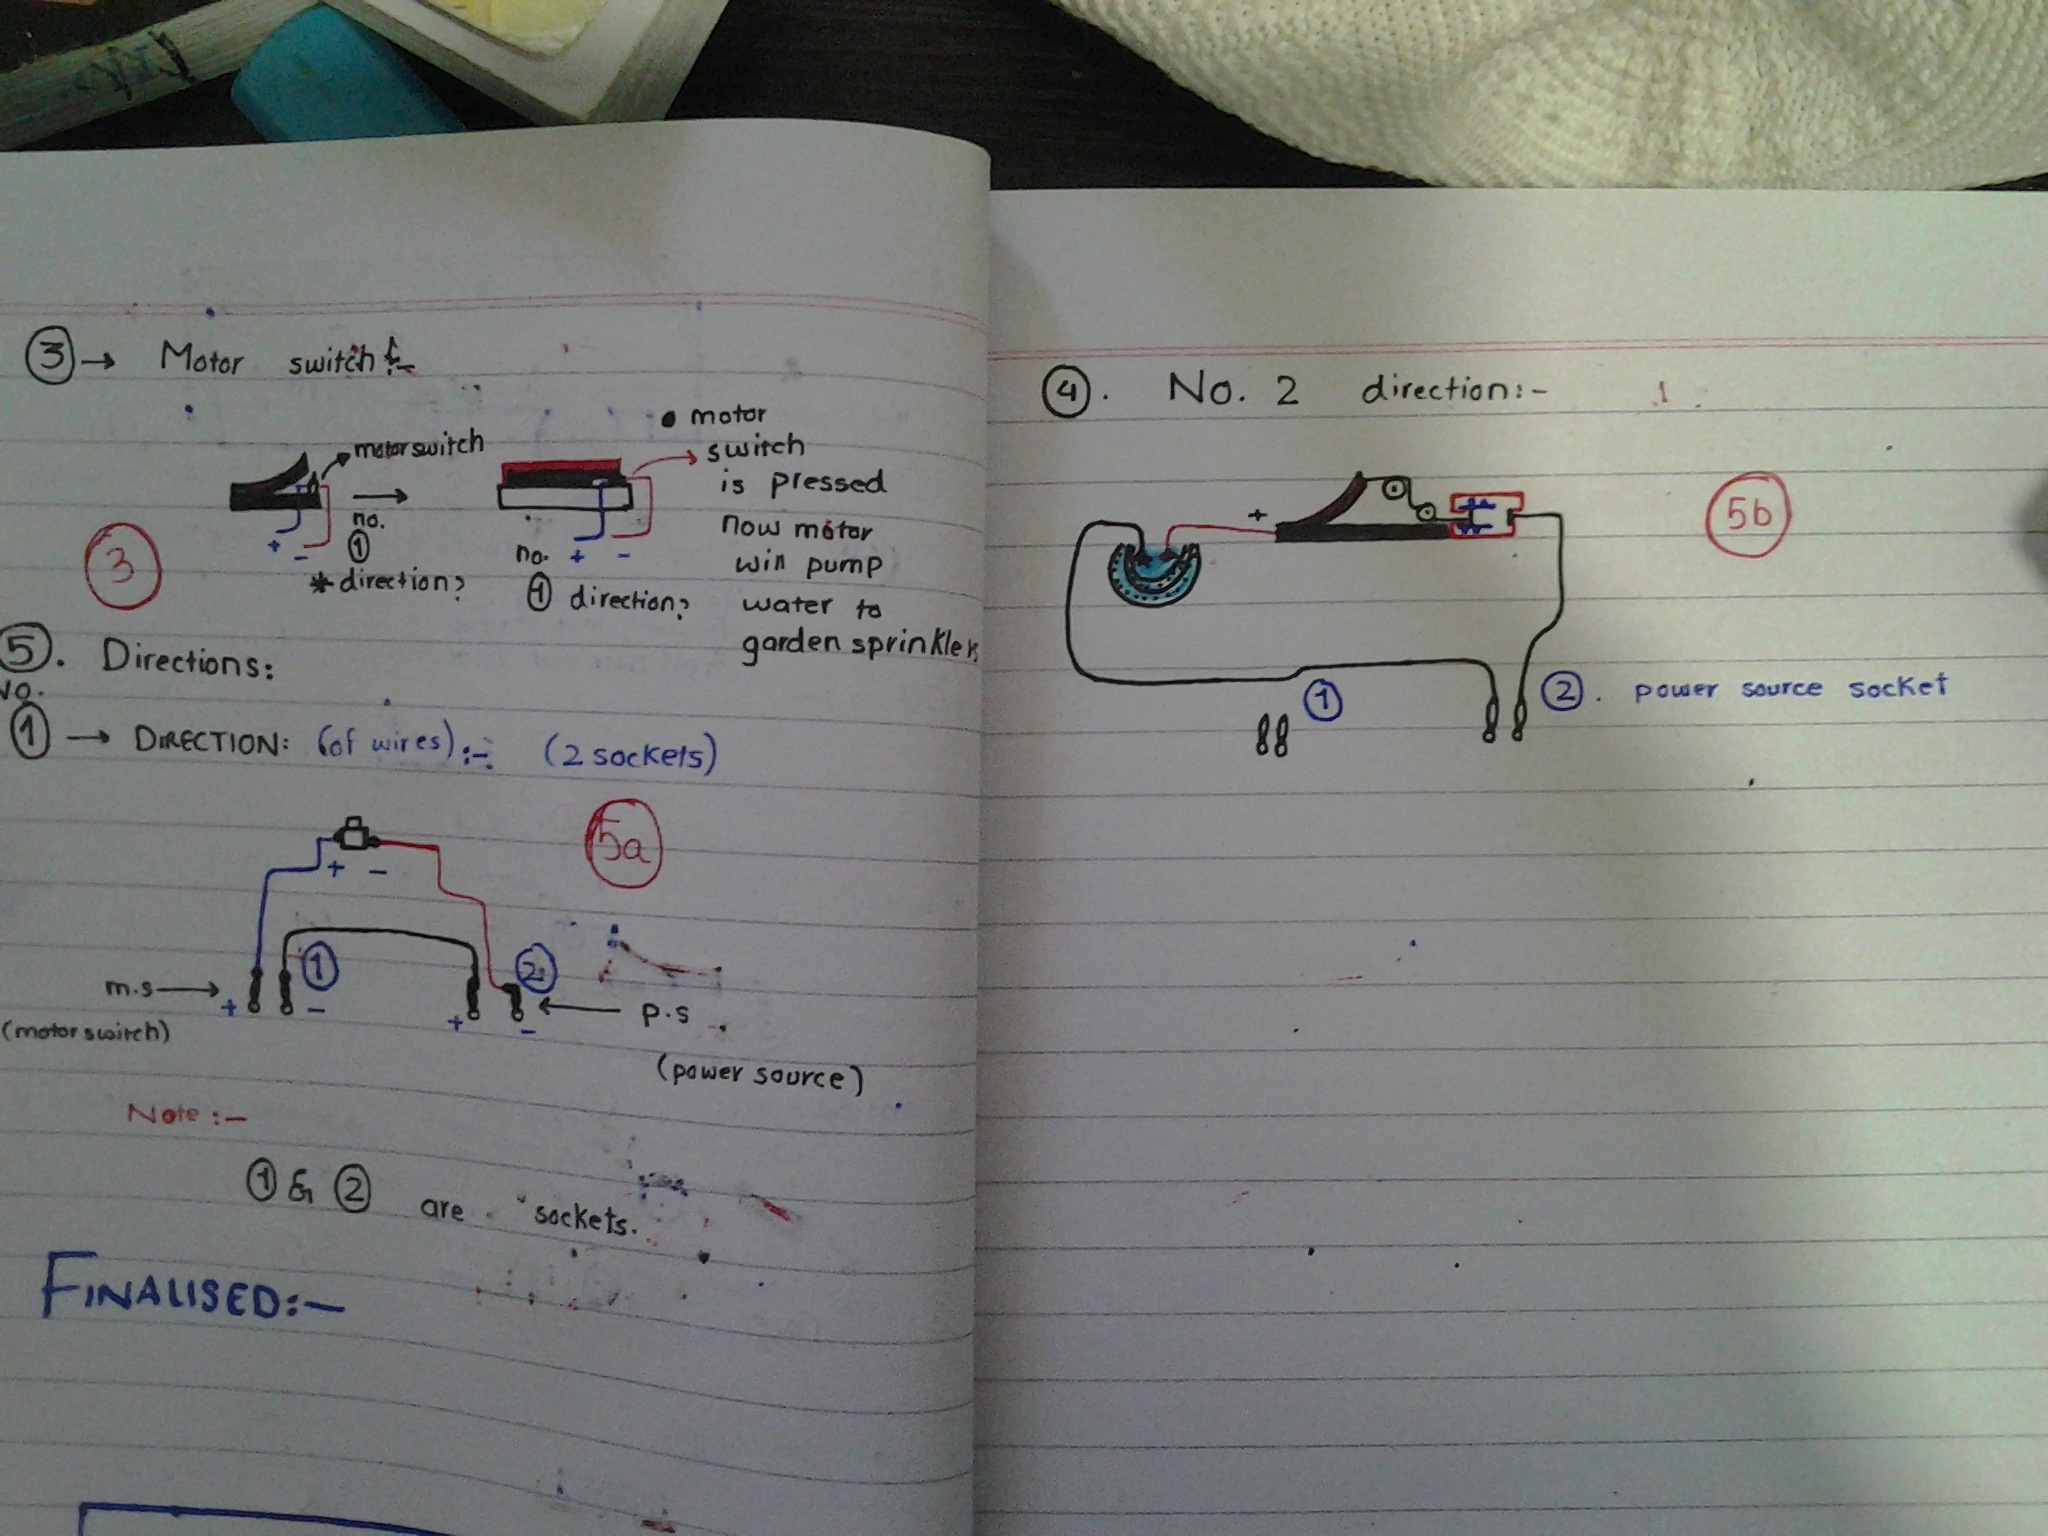 ③→ Motor switch:-
motorswitch
no.
①
* direction?
+ -
③
no. + -
① direction?
• motor
switch
is pressed
now motor
will pump
water to
garden sprinklers
⑤. Directions:
No.
① → DIRECTION: (of wires):- (2 sockets)
5a
+ -
① ②
m.s→ + - + - ← p.s
(motor switch)
(power source)
Note :-
① & ② are sockets.
FINALISED:-
④. No. 2 direction:-
+
5b
① ②. power source socket